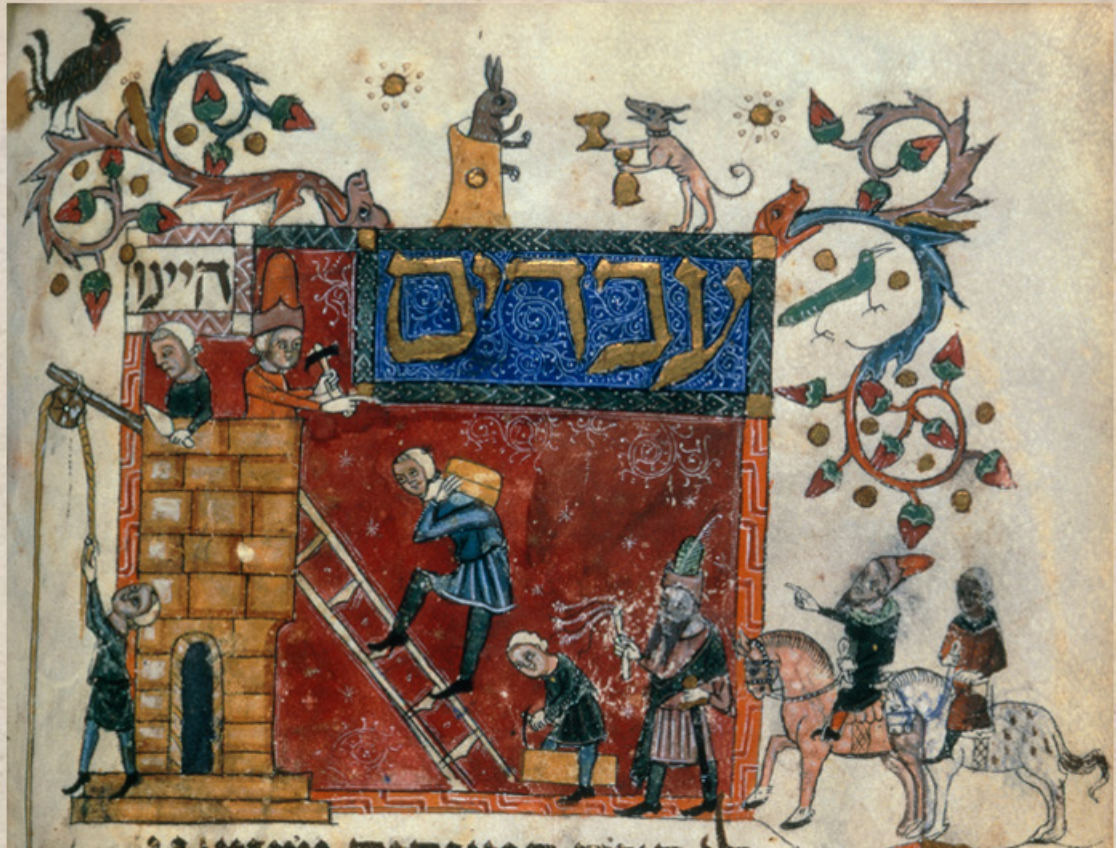 עבדים היינו